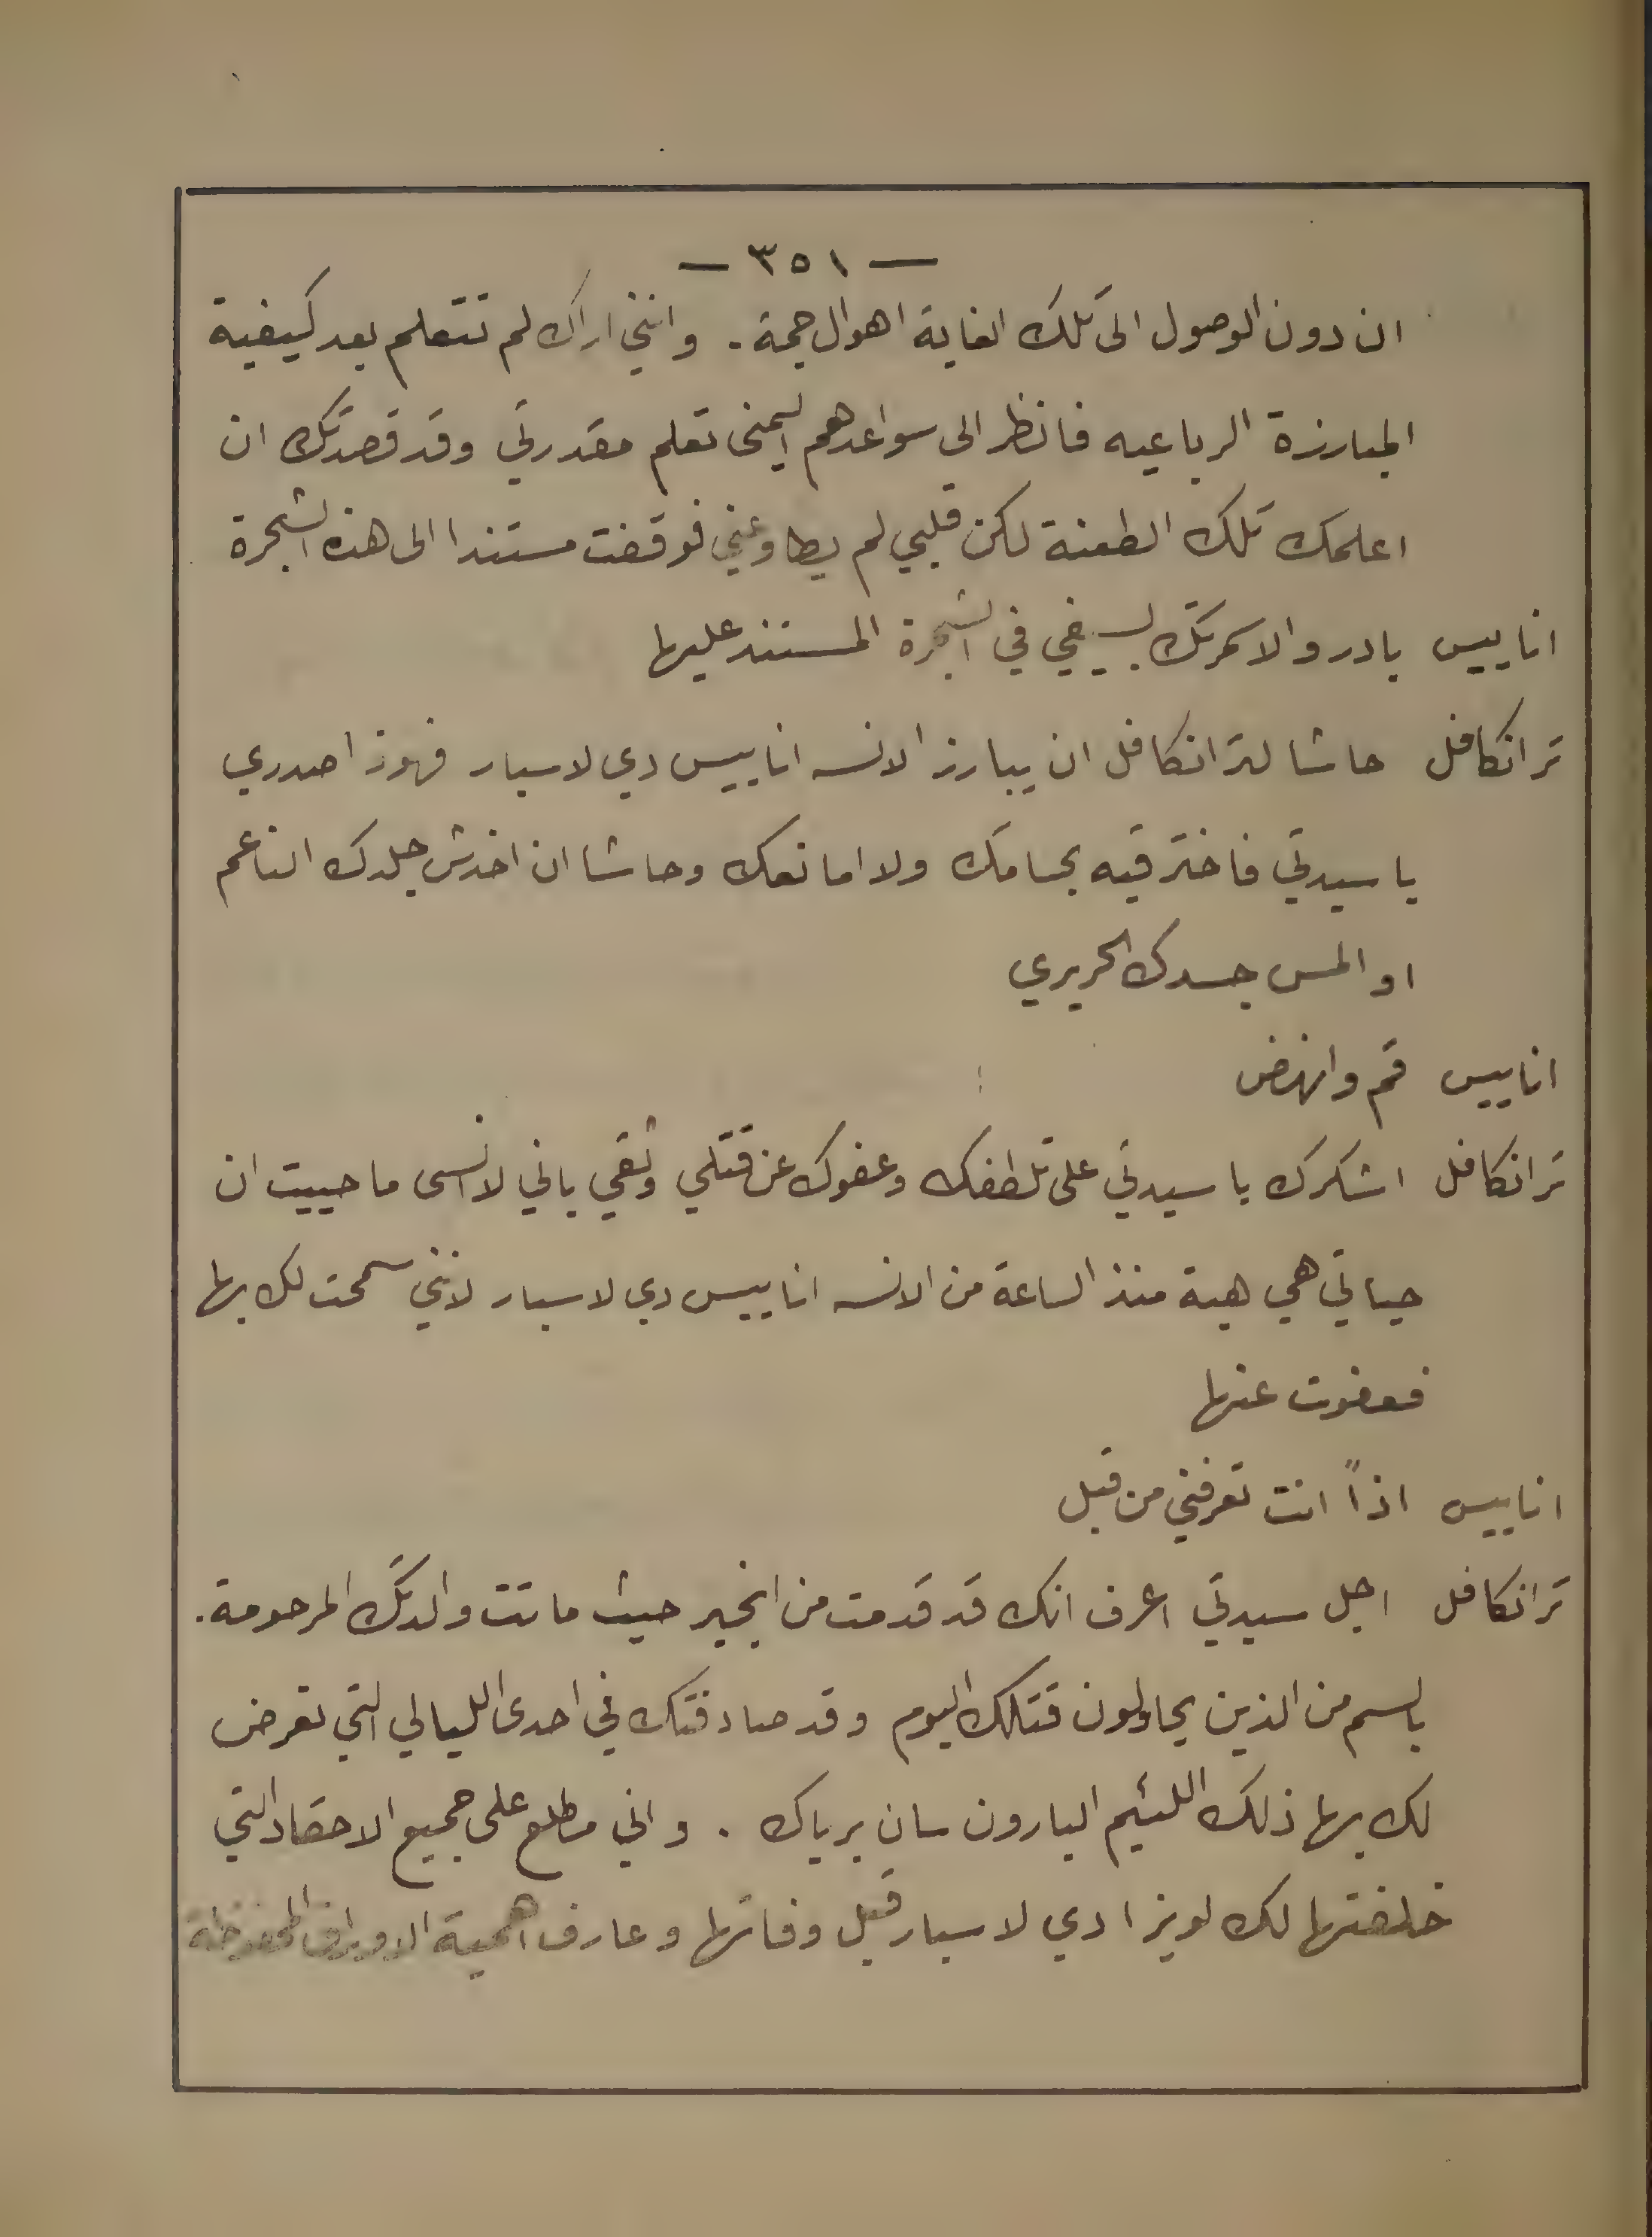 — ٣٥١ —
ان دون الوصول الى تلك الغاية اهوال جمة . وانني اراك لم تتعلم بعد كيفية
المبارزة الرباعيه فانظر الى سواعدهم اليمنى تعلم مقدرتي وقد قصدتك ان
اعلمك تلك الطعنة لكن قلبي لم يطاوعني فوقفت مستندا الى هذه الشجرة
اناييس بادر والا سمرتك بسيفي في الشجرة المستند عليها
ترانكافل حاشا لترانكافل ان يبارز الانسه اناييس دي لاسبار فهوذا صدري
يا سيدتي فاخترقيه بحسامك ولا امانعك وحاشا ان اخدش جلدك الناعم
او المس جسدك الحريري
اناييس قم وانهض
ترانكافل اشكرك يا سيدتي على تلطفك وعفوك عن قتلي وثقي باني لا انسى ما حييت ان
حياتي هي هبة منذ الساعة من الانسه اناييس دي لاسبار لانني سمحت لك بها
فعفوت عنها
اناييس اذاً انت تعرفني من قبل
ترانكافل اجل سيدتي اعرف انك قد قدمت من انجير حيث ماتت والدتك المرحومة .
بالسم من الذين يحاولون قتلك اليوم وقد صادفتك في احدى الليالي التي تعرض
لك بها ذلك اللئيم البارون سان برياك . واني مطلع على جميع الاحقاد التي
خلفتها لك لويزا دي لاسبار قبل وفاتها وعارف اهمية الاوراق